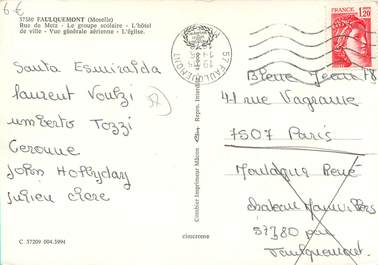 6-€
57380 FAULQUEMONT (Moselle)
Rue de Metz - Le groupe scolaire - L'hôtel
de ville - Vue générale aérienne - L'église.
57 FAULQUEMONT
1,20
Santa Esmiralda
Laurent Voulzi
umberto Tozzi
Geronne
John Hollyday
Julien Clerc
37
Combier Imprimeur Mâcon
cimcrome
C 57209 004.5994
Bleue Jean
41 rue Vagram
7507 Paris
Moulogne René
chateau
57380 par
Faulquemont